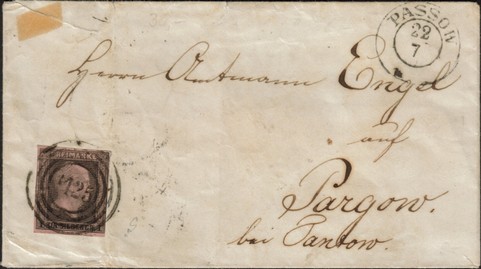 PASSOW
22
7
Herrn Amtmann Engel
auf
Pargow.
bei Tantow.
FREIMARKE